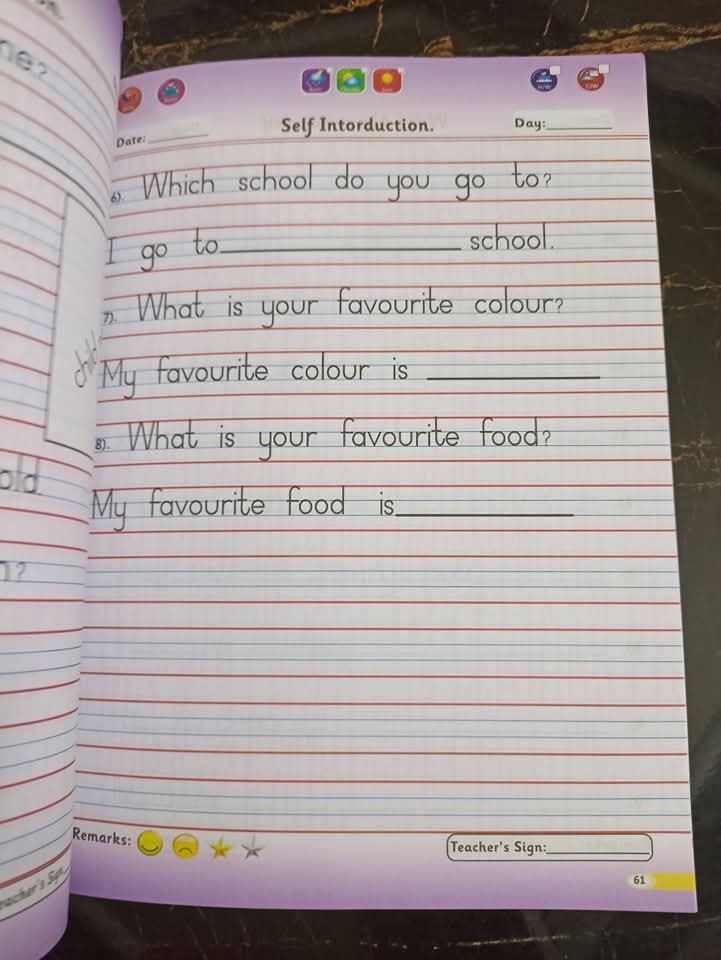 ne?
old.
n?
eacher's Sign
Self Intorduction.
Date:
Day:
H/W
C/W
6). Which school do you go to?
I go to school.
7). What is your favourite colour?
My favourite colour is
8). What is your favourite food?
My favourite food is
Remarks:
Teacher's Sign:
61